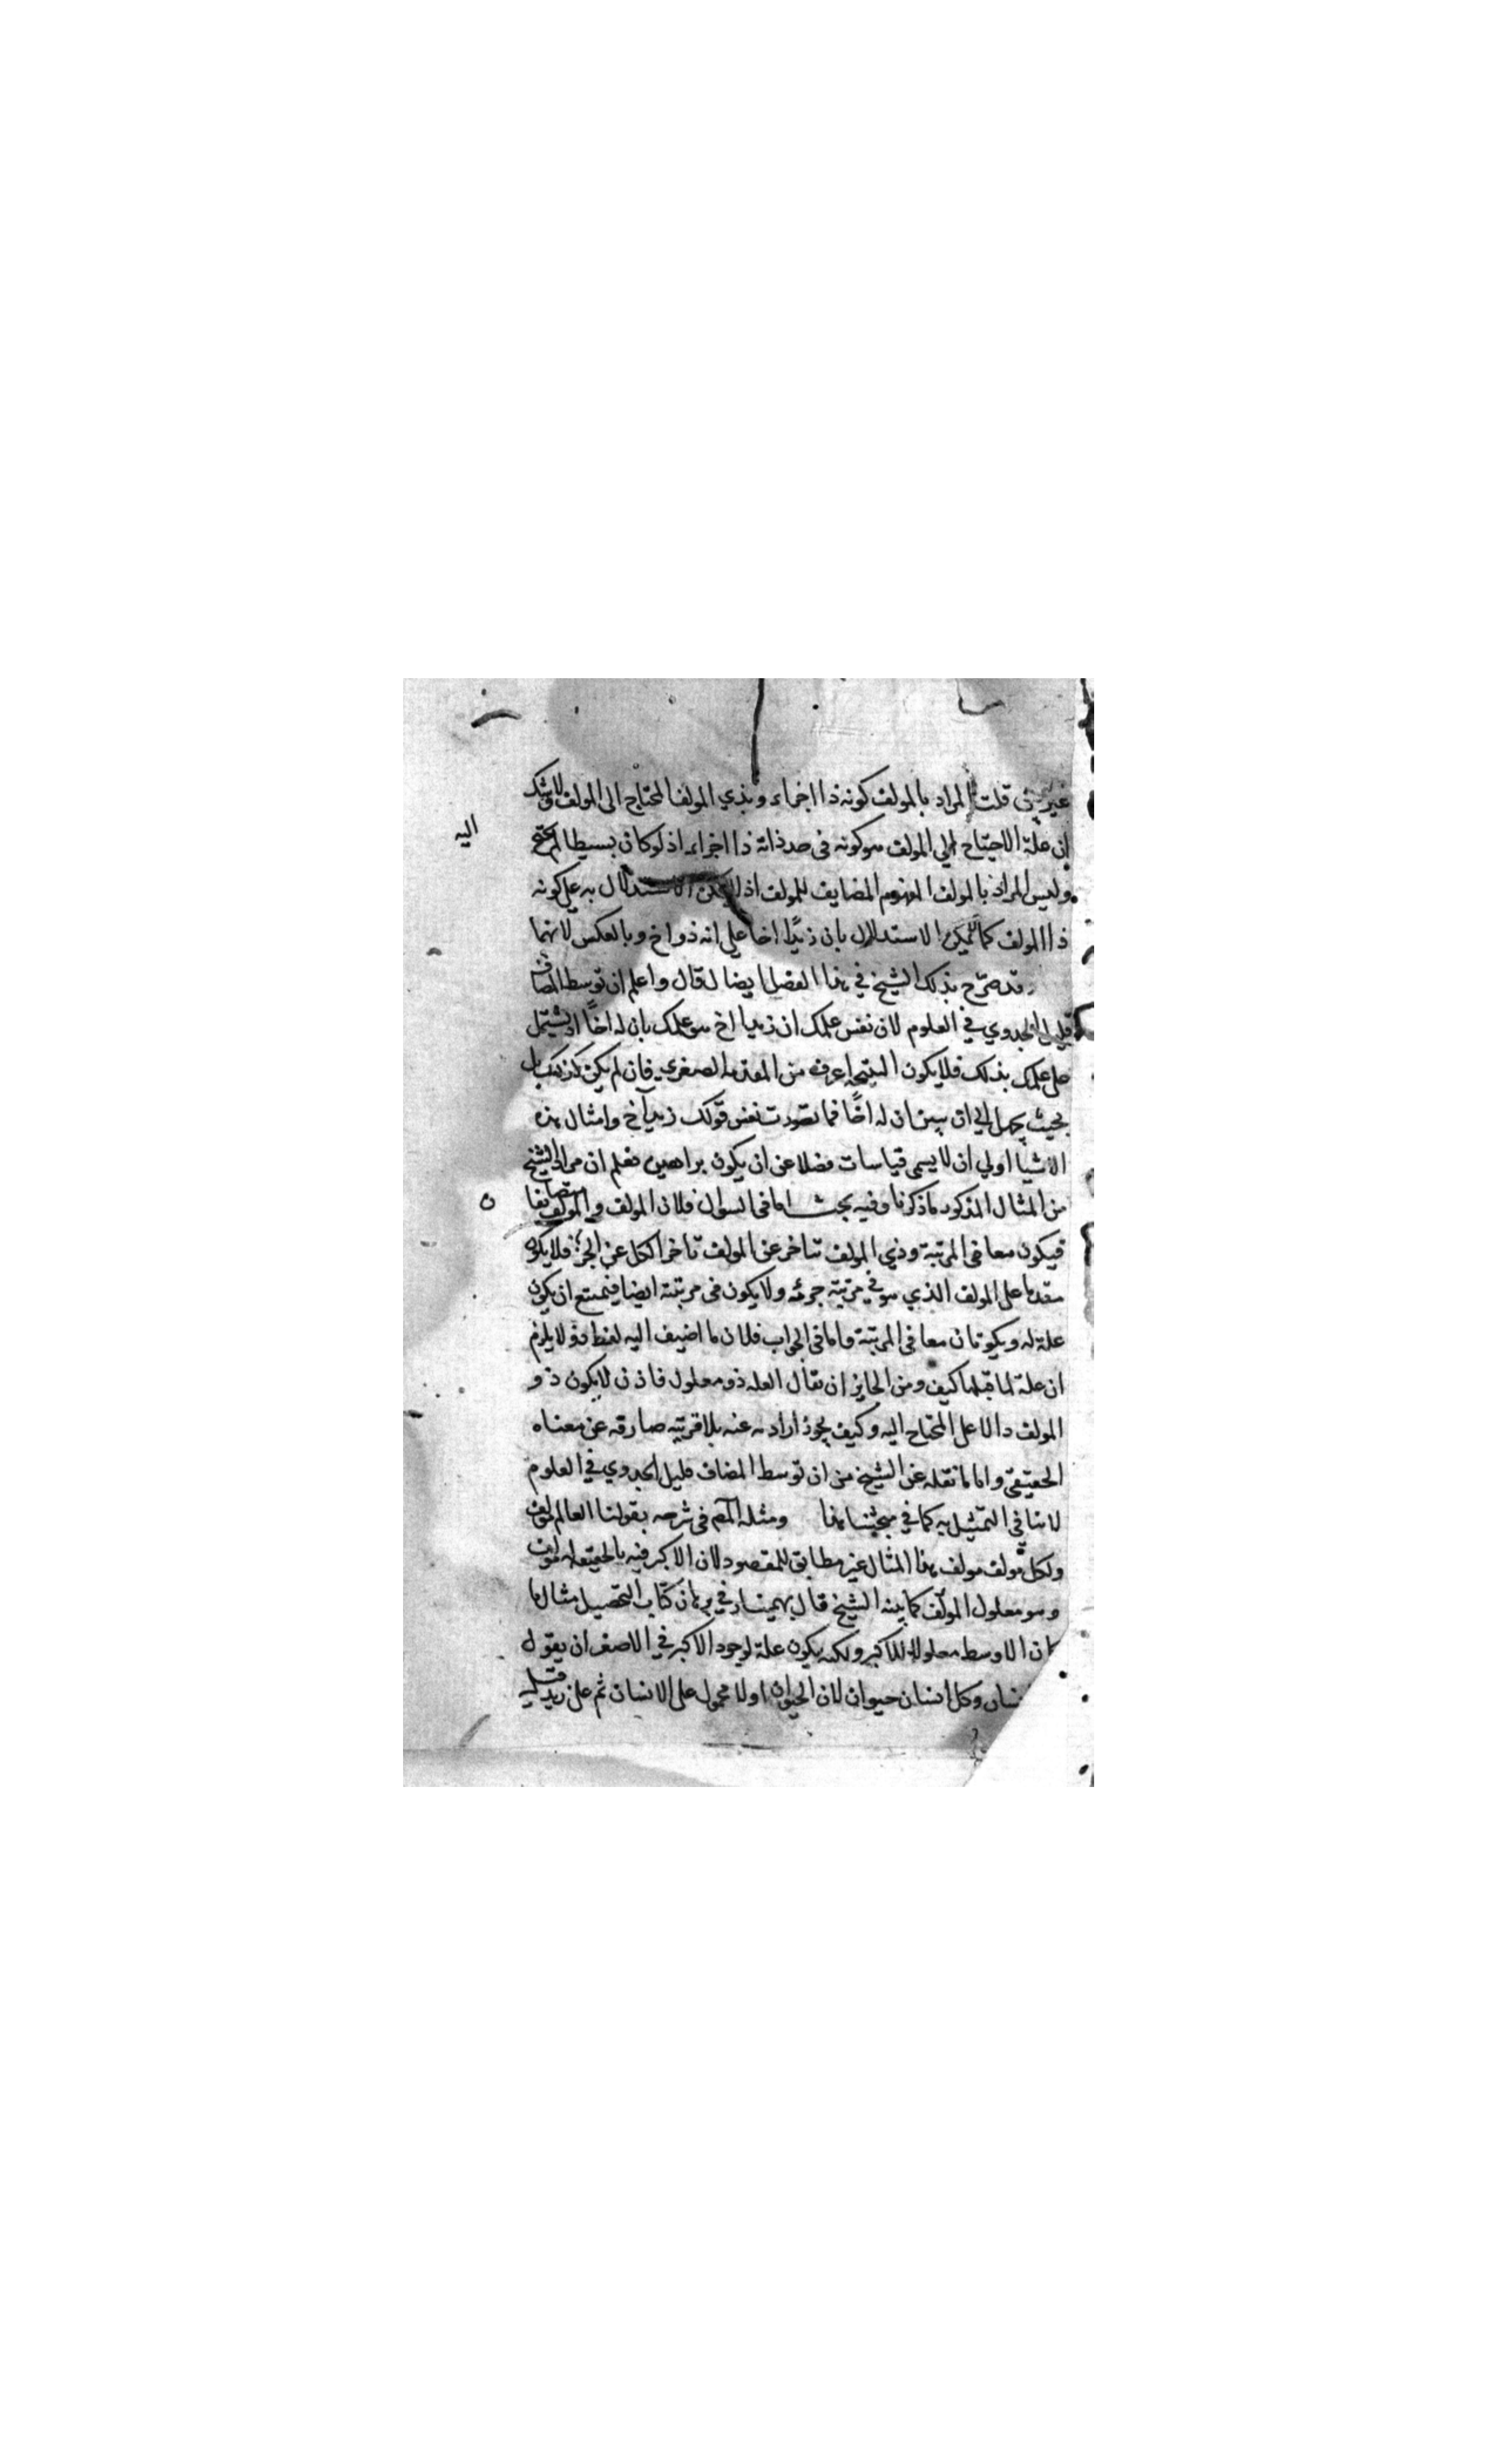 قلت المراد بالمولف كونه ذا اجزاء وبذي المولف المحتاج الى المولف ولا شك
ان علة الاحتياج الي المولف هو كونه فى حد ذاته ذا اجزاء اذ لو كان بسيطا لم يحتج
اليه
وليس المراد بالمولف المفهوم المضايف للمولف اذ لا يمكن الاستدلال به علي كونه
ذا المولف كما لا يمكن الاستدلال بان زيدًا اخا علي انه ذو اخ وبالعكس لانهما
قد صرّح بذلك الشيخ في هذا الفصل ايضا قال واعلم ان توسط المضاف
قليل الجدوي في العلوم لان نفس علمك ان زيدا اخ هو علمك بان له اخًا او يشتمل
على علمك بذلك فلا يكون النتيجة اعرف من المقدمة الصغري فان لم يكن كذلك بل
بحيث يجهل الي ان يبين ان له اخًا فما تصورت نفس قولك زيد اخ وامثال هذه
الاشيا اولي ان لا يسمى قياسات فضلا عن ان يكون براهين فعلم ان مراد الشيخ
من المثال المذكور ما ذكرنا وفيه بحث اما فى السوال فلان المولف والمولف متضايفا
ن
فيكون معا فى المرتبة وذي المولف تتاخر عن المولف تاخر الكل عن الجزء فلا يكون
مقدما على المولف الذي هو في مرتبة جزئه ولا يكون فى مرتبته ايضا فيمتنع ان يكون
علة له ويكونان معا فى المرتبة واما فى الجواب فلان ما اضيف اليه لفظ ذو لا يلزم
ان علة لما قبلها كيف ومن الجايز ان يقال العله ذو معلول فاذن لا يكون ذو
المولف دالا على المحتاج اليه وكيف يجوز ارادته عنه بلا قرينه صارفه عن معناه
الحقيقي واما ما نقله عن الشيخ من ان توسط المضاف قليل الجدوي في العلوم
لا ينافي التمثيل به كما في مبحثنا هذا ومثله المص فى شرحه بقولنا العالم مولف
ولكل مولف مولف هذا المثال غير مطابق للمقصود لان الاكبر فيه بالحقيقه له مولف
وهو معلول المولّف كما بينه الشيخ قال بهمنيار في برهان كتاب التحصيل مثال ما
كان الاوسط معلولا للاكبر ولكنه يكون علة لوجود الاكبر في الاصغر ان يقول
وكل انسان حيوان لان الحيوان اولا محمول على الانسان ثم على زيد